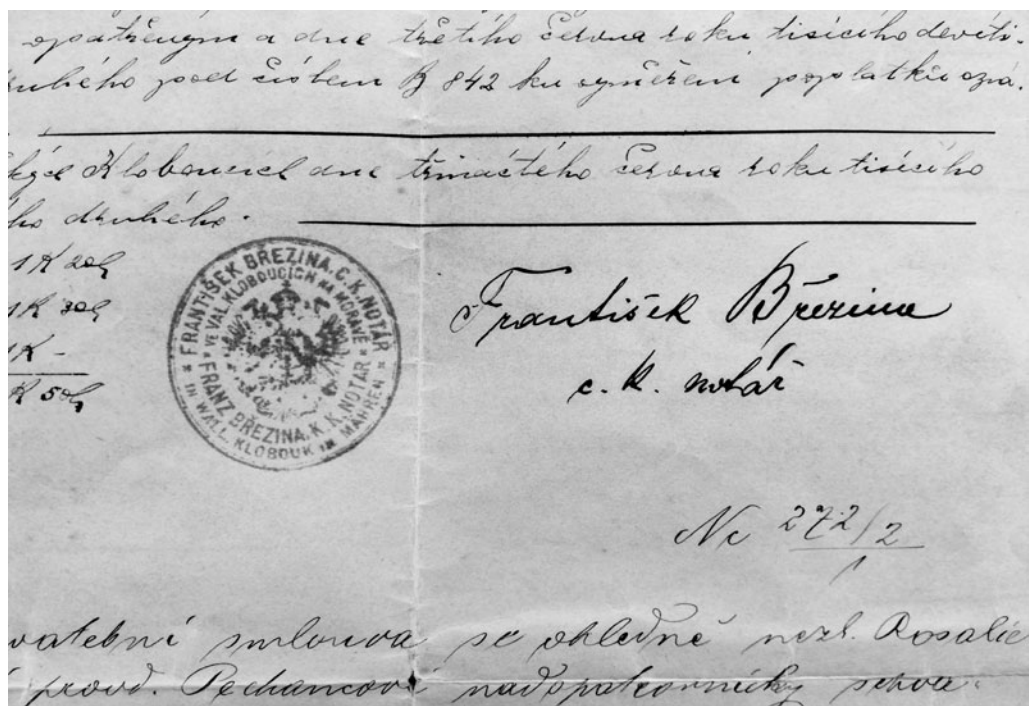 opatřeným a dne třetího června roku tisícího devíti-
druhého pod číslem B 842 ku vyměření poplatku ozná.
Kloboucích dne třináctého června roku tisícího
ho druhého.
1K 20h
1K 30h
1K -
K 50h
* FRANTIŠEK BŘEZINA, C. K. NOTÁŘ *
* VE VAL. KLOBOUCÍCH NA MORAVĚ *
FRANZ BŘEZINA, K. K. NOTAR
IN WALL. KLOBOUK IN MÄHREN
František Březina
c. k. notář
Nc 272/2
1
vatební smlouva se ohledně nezl. Rosalie
provd. Pechancové nadopatrovnicky schva-